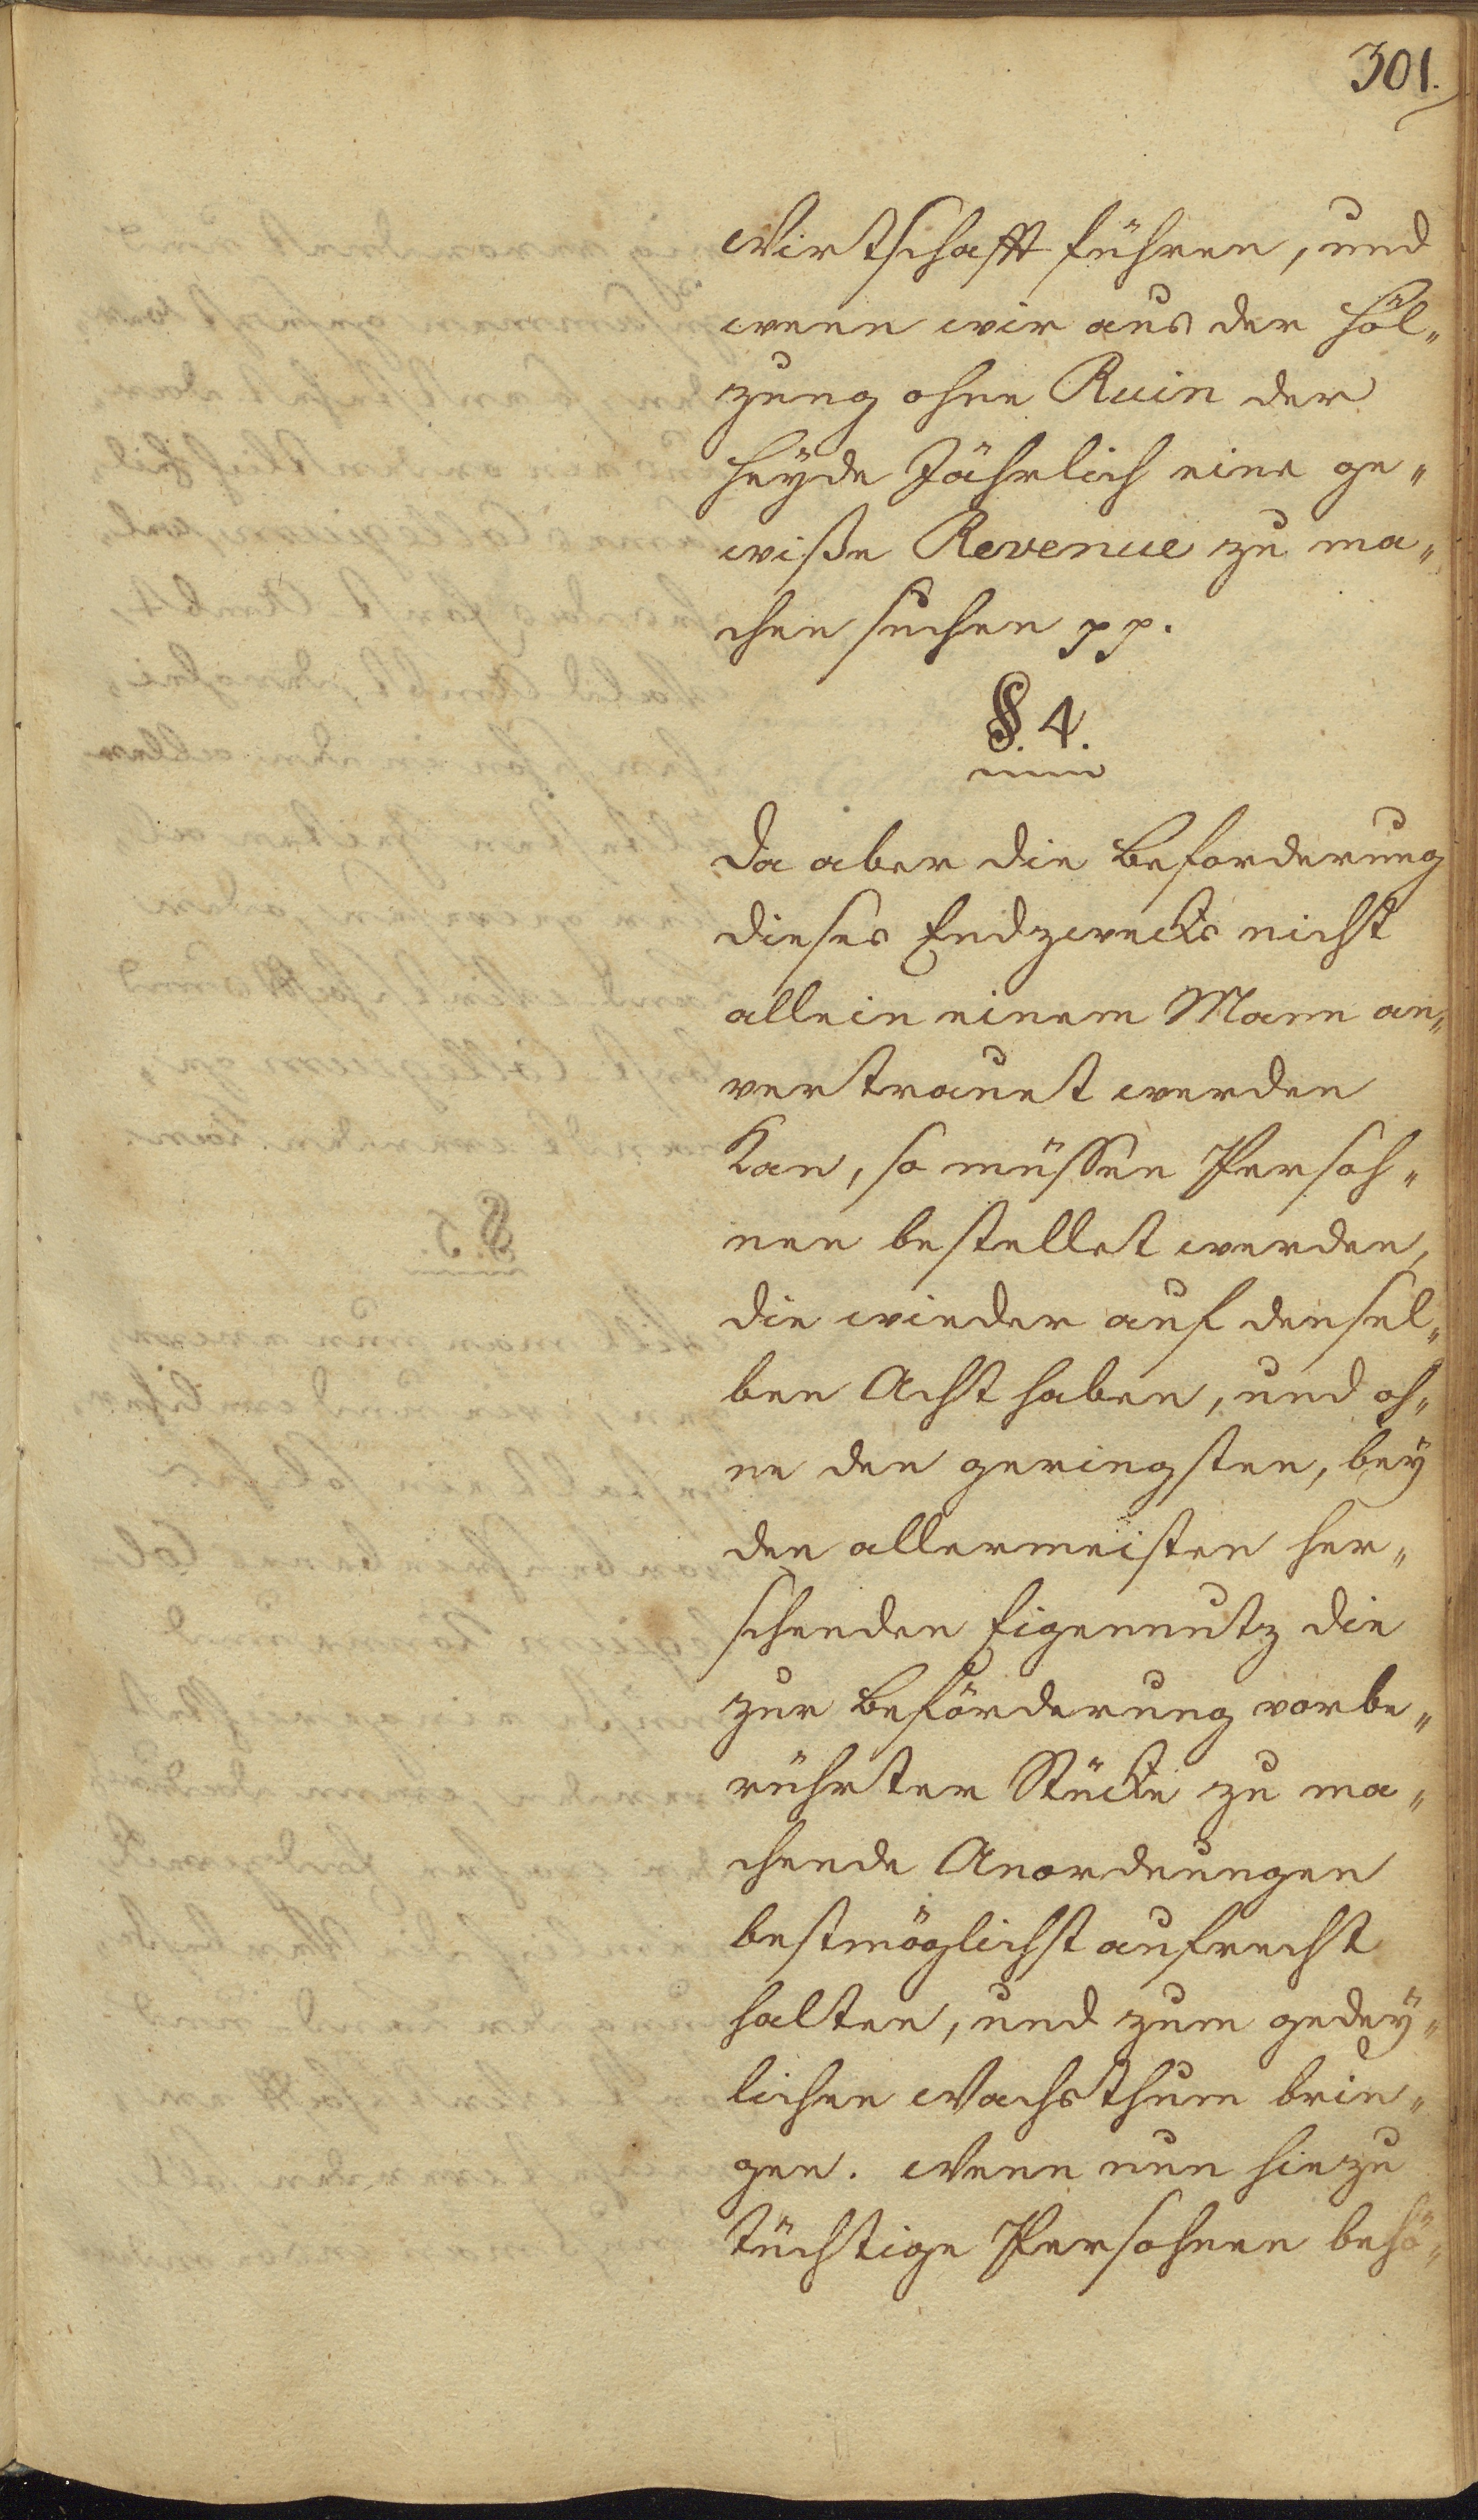 301.
Wirtschafft führen, und
wenn wir aus der Höl„
zung ohne Ruin der
Heyde Jährlich eine ge„
wiße Revenue zu ma„
chen suchen pp.
§. 4.
Da aber die Beforderung
dieses Endzwecks nicht
allein einem Mann an„
vertrauet werden
Kan, so müssen Persoh„
nen bestellet werden,
die wieder auf densel„
ben Acht haben, und oh„
ne den geringsten, bey
den allermeisten her„
schenden Eigennutz die
zur Beförderung vorbe„
rührter Stücke zu ma„
chende Anordnungen
bestmöglichst aufrecht
halten, und zum gedey„
lichen Wachsthum brin„
gen. Wenn nun hiezu
tüchtige Persohnen behö„